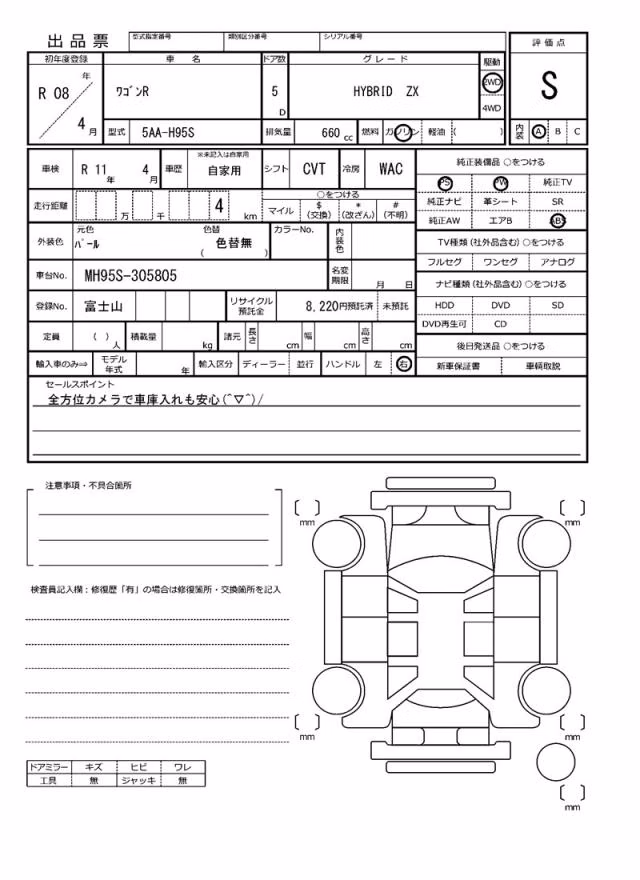 出品票 型式指定番号 類別区分番号 シリアル番号
評価点
S
内装 A B C
初年度登録 車名 ドア数 グレード 駆動
R 08 年 4 月 ワゴンR 5 D HYBRID ZX 2WD 4WD
型式 5AA-H95S 排気量 660 cc 燃料 ガソリン 軽油 ( )
車検 R 11 年 4 月 車歴 ※未記入は自家用 自家用 シフト CVT 冷房 WAC
走行距離 万 千 4 km ○をつける
マイル $ (交換) * (改ざん) # (不明)
外装色 元色 パール 色替 色替無 ( ) カラーNo. 内装色
車台No. MH95S-305805 名変期限 月 日
登録No. 富士山 リサイクル預託金 8,220円預託済 未預託
定員 ( ) 人 積載量 kg 諸元 長さ cm 幅 cm 高さ cm
輸入車のみ⇒ モデル年式 年 輸入区分 ディーラー 並行 ハンドル 左 右
純正装備品 ○をつける
PS PW 純正TV
純正ナビ 革シート SR
純正AW エアB ABS
TV種類(社外品含む)○をつける
フルセグ ワンセグ アナログ
ナビ種類(社外品含む)○をつける
HDD DVD SD
DVD再生可 CD
後日発送品 ○をつける
新車保証書 車輌取説
セールスポイント
全方位カメラで車庫入れも安心(^▽^)/
注意事項・不具合箇所
検査員記入欄：修復歴「有」の場合は修復箇所・交換箇所を記入
ドアミラー キズ ヒビ ワレ
工具 無 ジャッキ 無
[ ] mm
[ ] mm
[ ] mm
[ ] mm
[ ] mm